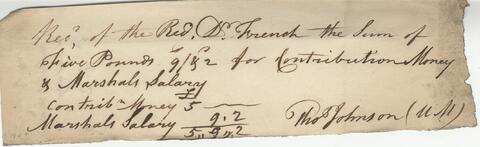 Rec.d of the Rev.d Dr. French the Sum of
Five Pounds 9/ & 2 for Contribution Money
& Marshals Salary
£
Contribn Money 5
Marshals Salary 9 . 2
5 .. 9 .. 2
Thos Johnson (UM)